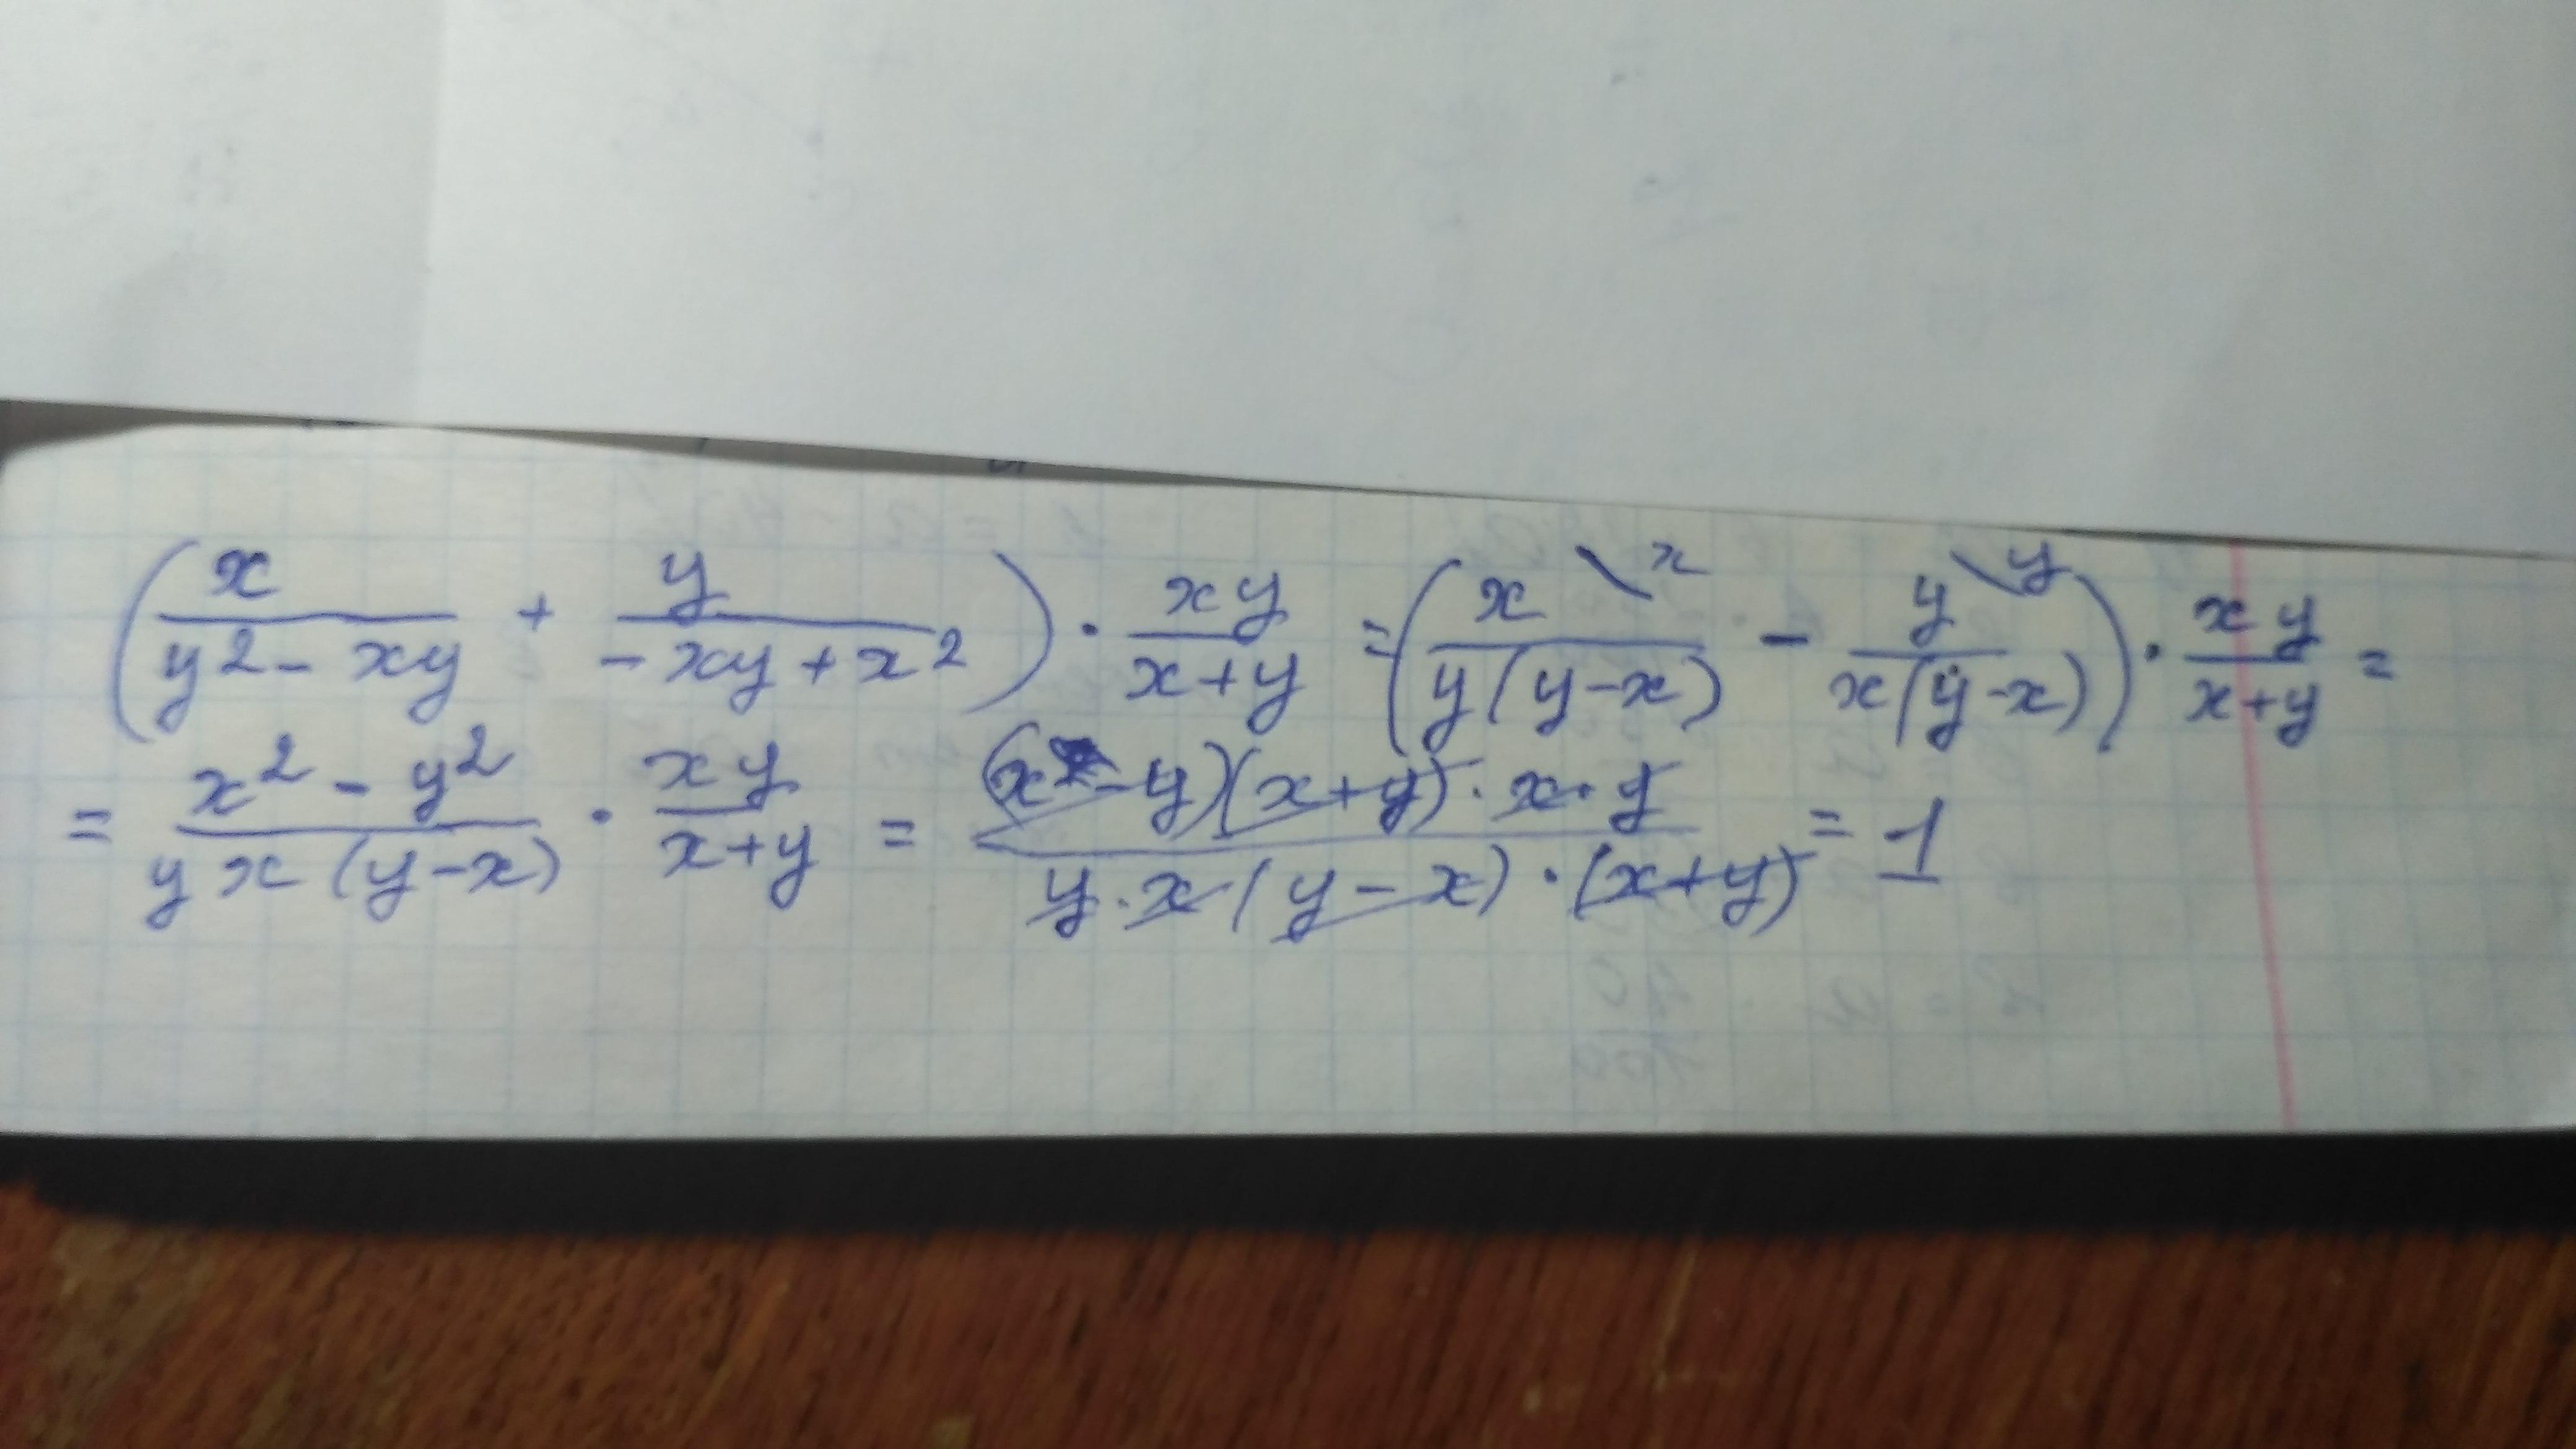 (x/(y² - xy) + y/(-xy + x²)) · xy/(x+y) = (x\x/(y(y-x)) - y\y/(x(y-x))) · xy/(x+y) =
= (x² - y²)/(yx(y-x)) · xy/(x+y) = ((x-y)(x+y)·x·y)/(y·x(y-x)·(x+y)) = 1